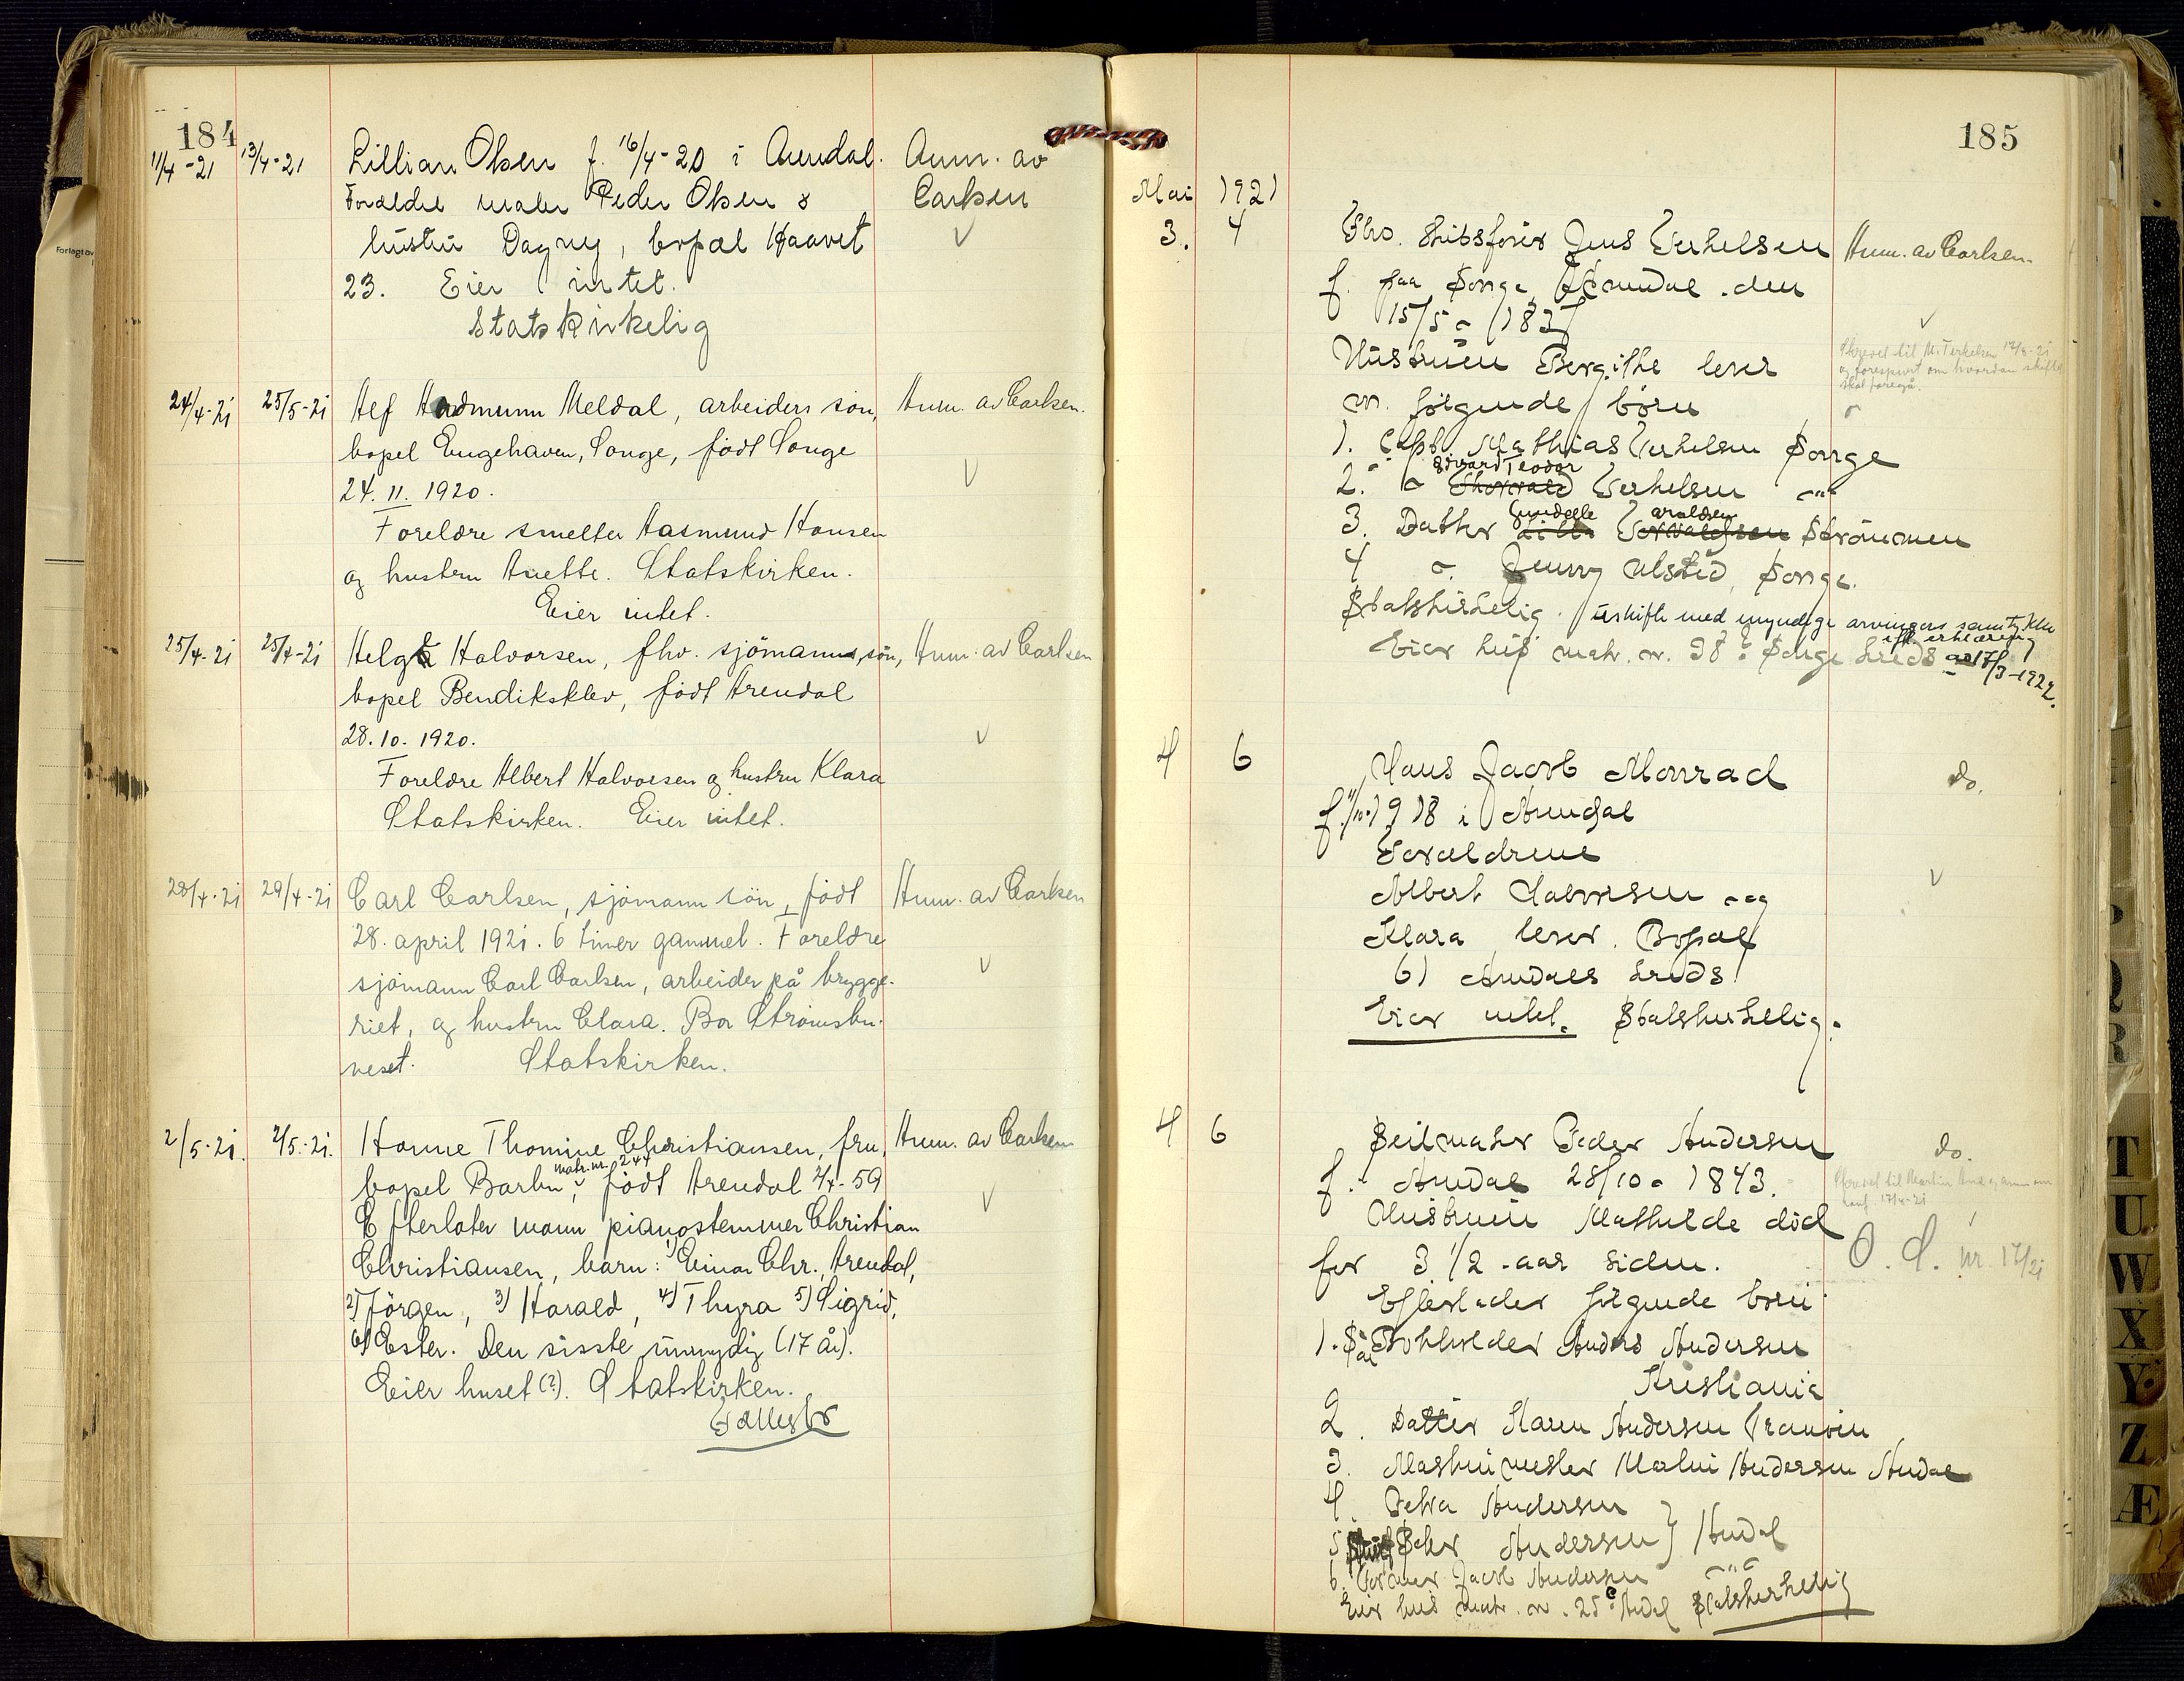 184
11/4-21 13/4-21 Lillian Olsen f. 16/4-20 i Arendal. Anm. av
Forældre maler Peder Olsen & Carlsen
hustru Dagny, bopæl Haavet
23. Eier intet.
Statskirkelig
24/4-21 25/5-21 Alf Aadmunn Meldal, arbeiders søn, Anm. av Carlsen.
bopel Engehaven, Songe, født Songe
24. 11. 1920.
Foreldre smelter Aasmund Hansen
og hustru Anette. Statskirken.
Eier intet.
25/4-21 25/4-21 Helge Halvorsen, fhv. sjømanns søn, Anm. av Carlsen
bopel Bendiksklev, født Arendal
28. 10. 1920.
Foreldre Albert Halvorsen og hustru Klara
Statskirken. Eier intet.
28/4-21 29/4-21 Carl Carlsen, sjømann søn, født Anm. av Carlsen
28. april 1921. 6 timer gammel. Foreldre
sjømann Carl Carlsen, arbeider på brygge-
riet, og hustru Clara. Bor Strømsbu-
neset. Statskirken.
2/5-21. 2/5-21. Hanne Thomine Christiansen, fru, Anm. av Carlsen
matr. nr. 244
bopel Barbu, født Arendal 2/4-59
Efterlater mann pianostemmer Christian
Christiansen, barn: 1) Einar Chr., Arendal,
2) Jörgen, 3) Harald, 4) Thyra 5) Sigrid,
6) Ester. Den sisste umyndig (17 år).
Eier huset (?). Statskirken.
185
Mai 1921
3. 4 Fhv. skibsfører Jens Terkelsen Anm. av Carlsen.
f. paa Songe, Arendal den
15/5 - 1837
Hustruen Bergithe lever
m. følgende børn
Skrevet til M. Terkelsen 17/8-21
og forespurt om hvordan skiftet
skal foregå.
1. Capt. Mathias Terkelsen Songe
Edvard Teodor
2. " Thorvald Terkelsen "
araldsen
3. Datter Torvaldsen Strømmen
4 " Jenny Ulsted, Songe.
Statskirkelig. Uskifte med myndige arvingers samtykke
ifl. erklæring
Eier hus matr. nr. 38 Songe Kreds av 17/3-1922.
4 6 Hans Jacob Monrad do.
f. 1918 i Arendal
Forældrene
Albert Halvorsen og
Klara lever. Bopæl
61 Arendals Kreds
Eier intet. Statskirkelig.
4 6 Seilmaker Peder Andersen do.
f. Arendal 28/10 - 1843.
Hustruen Mathilde død
for 3 1/2 aar siden. O. S. nr. 17/21
Efterlader følgende børn
1. Bokholder Anders Andersen
Kristiania
2. Datter Karen Andersen Tromøen
3. Maskinmester Martin Andersen Arendal
4. Petra Andersen
5 Peder Andersen } Arendal
6. Jacob Andersen "
Eier hus matr. nr. 25 Arendal Statskirkelig